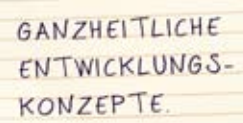 GANZHEITLICHE
ENTWICKLUNGS-
KONZEPTE.